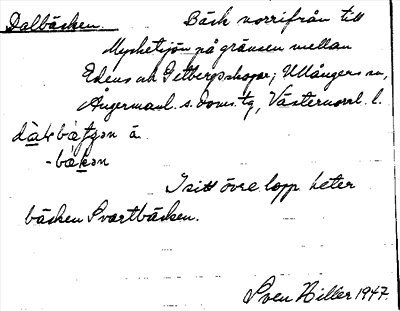 Dalbäcken. Bäck norrifrån till
Mycketjön på gränsen mellan
Edens och Getbergsskogar; Ullångers sn,
Ångermanl. s. doms. tg, Västernorrl. l.
-bäkən
I sitt övre lopp heter
bäcken Svartbäcken.
Sven Hiller 1947.